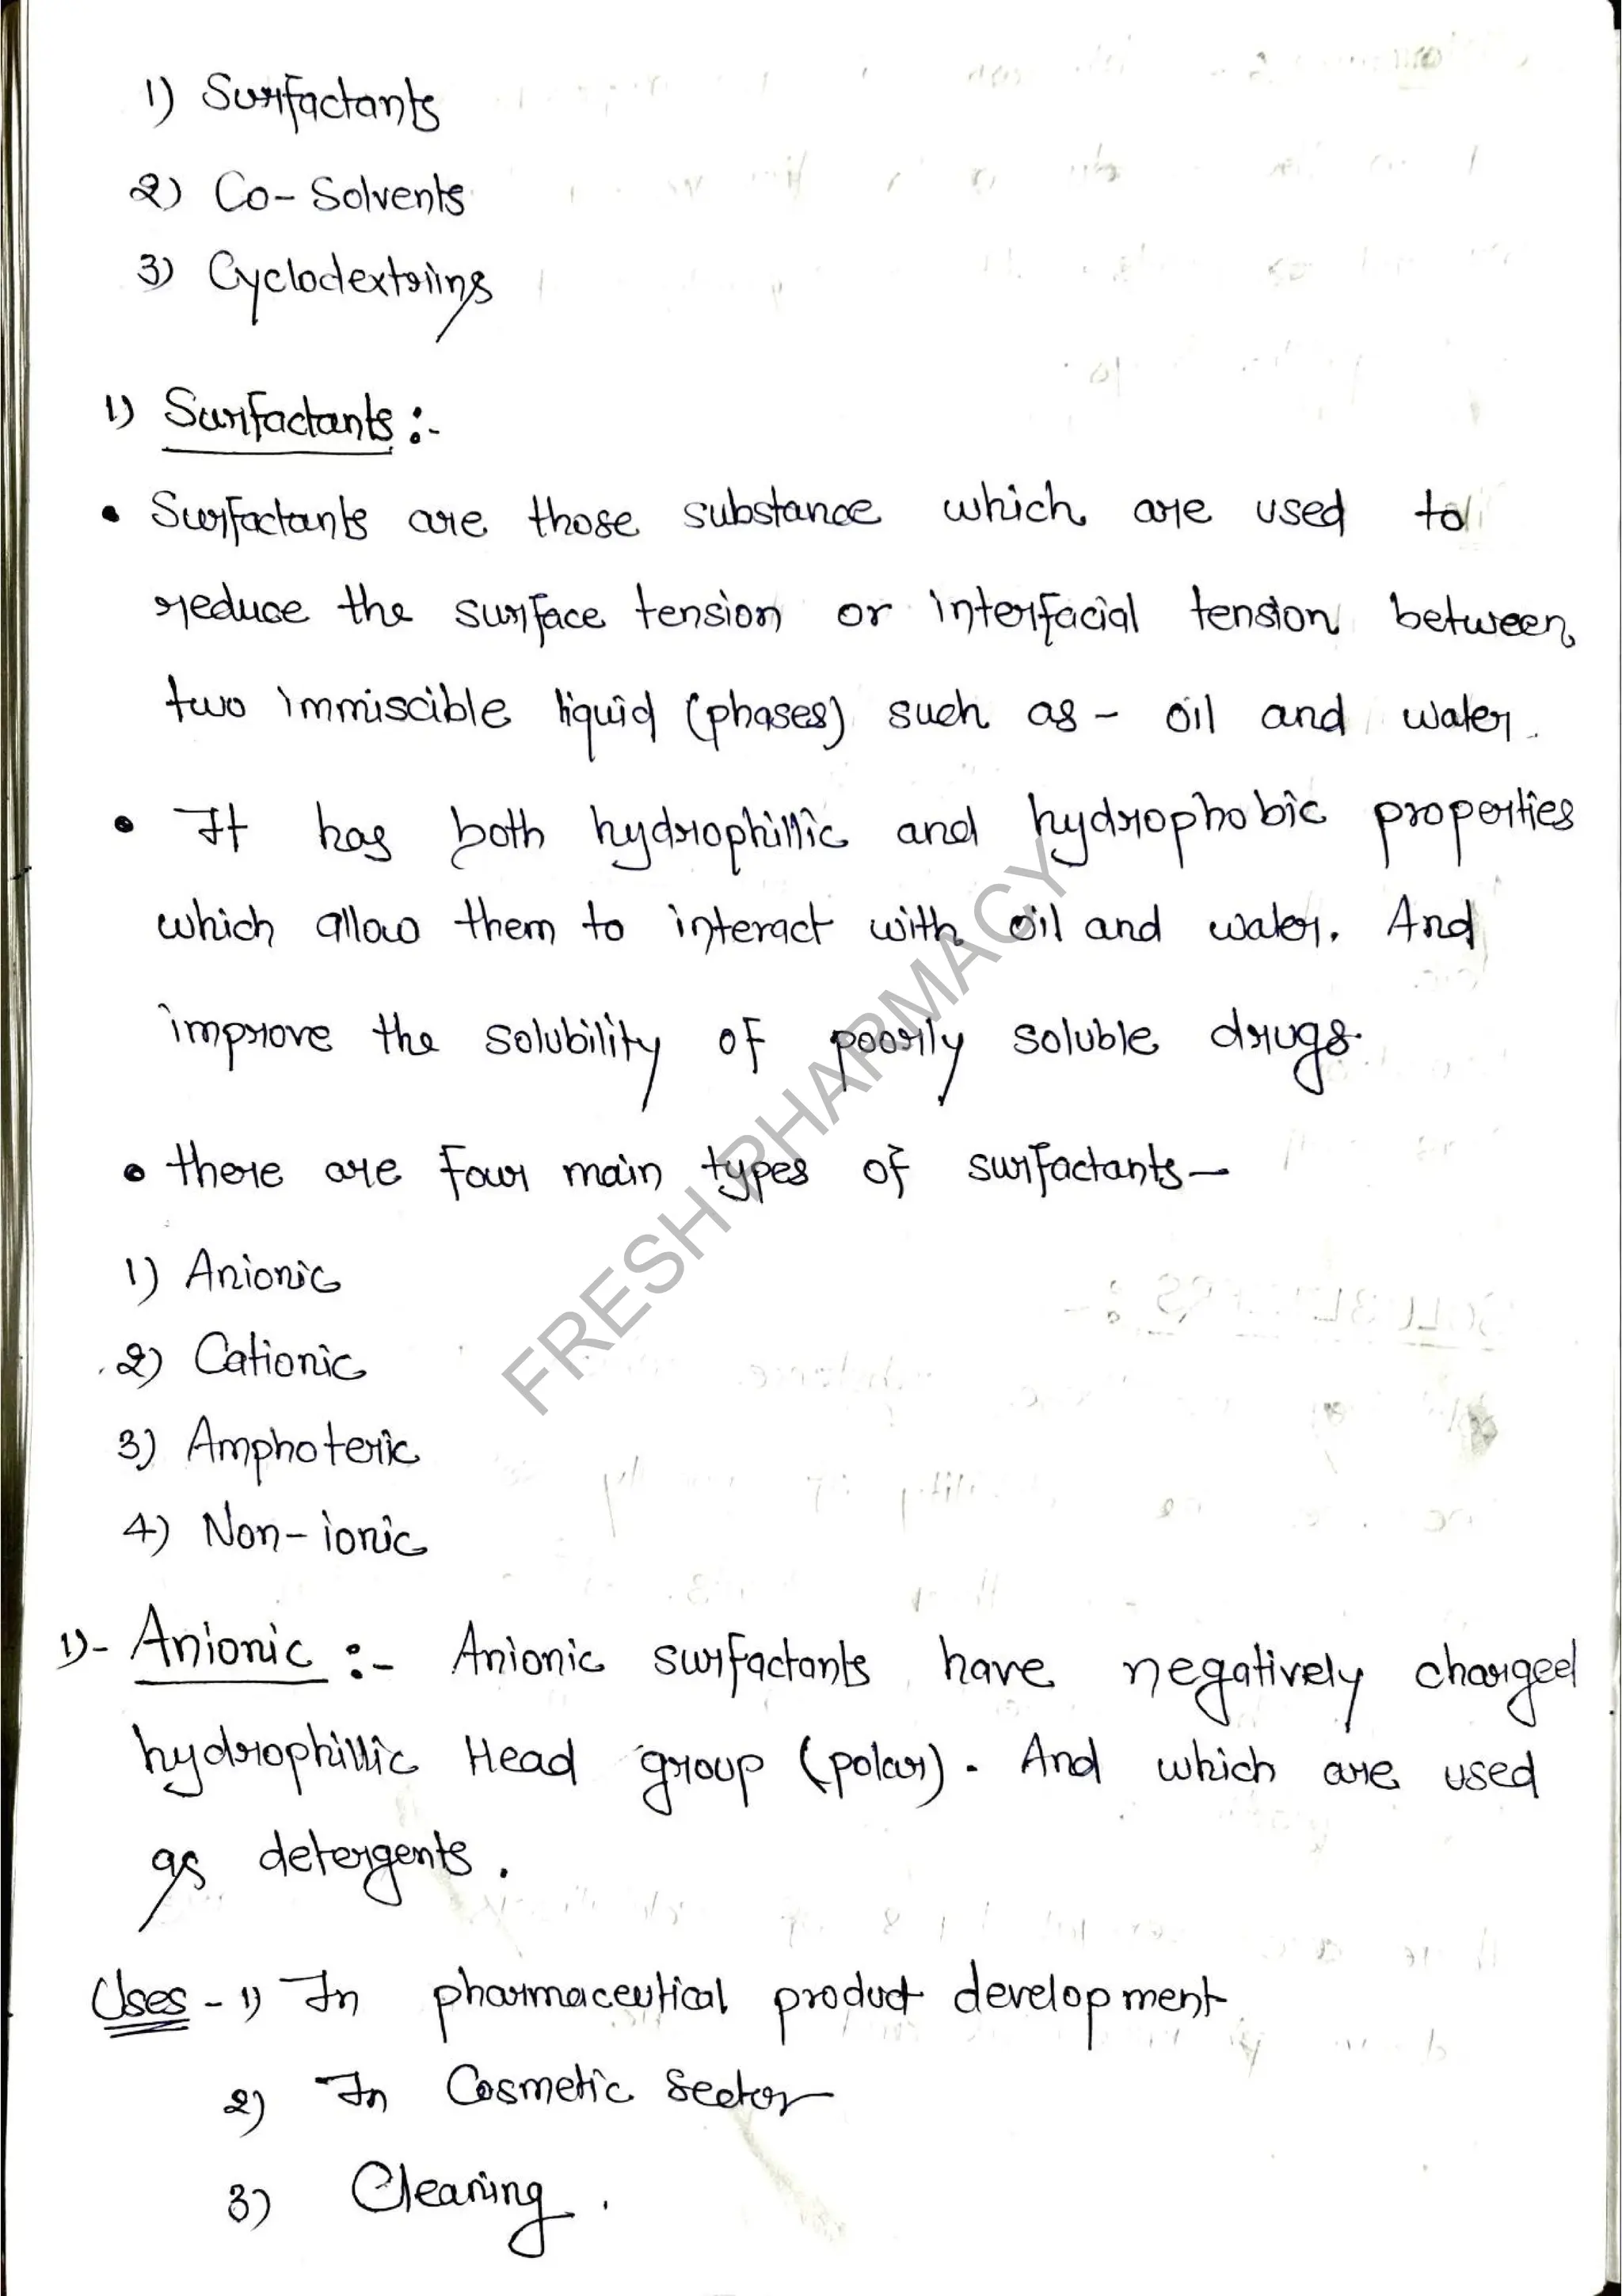 1) Surfactants
2) Co-Solvents
3) Cyclodextrins
1) Surfactants :-
• Surfactants are those substance which are used to
reduce the surface tension or interfacial tension between
two immiscible liquid (phases) such as - oil and water.
• It has both hydrophillic and hydrophobic properties
which allow them to interact with oil and water. And
improve the solubility of poorly soluble drugs.
• there are four main types of surfactants-
1) Anionic
2) Cationic
3) Amphoteric
4) Non-ionic
1)- Anionic :- Anionic surfactants have negatively charged
hydrophillic Head group (polar). And which are used
as detergents.
Uses - 1) In pharmaceutical product development
2) In Cosmetic Sector
3) Cleaning.
FRESH PHARMACY